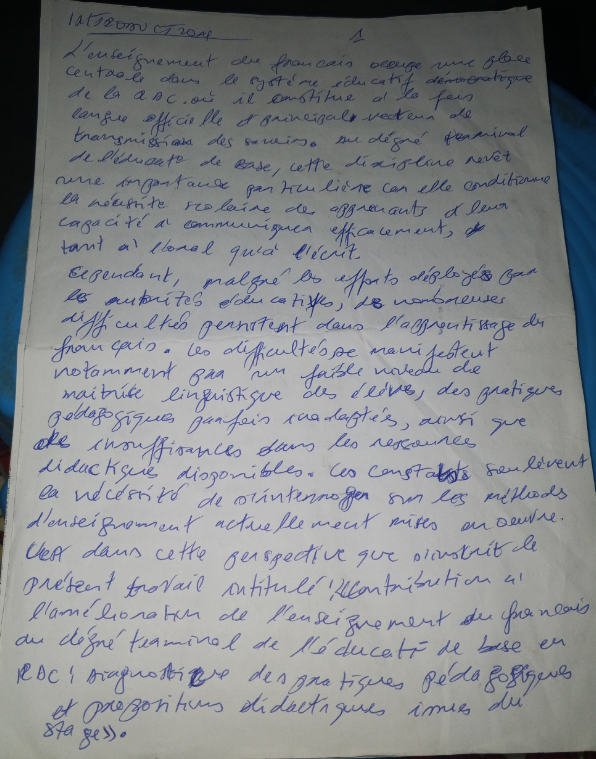 INTRODUCTION
1
L'enseignement du français occupe une place
centrale dans le système éducatif démocratique
de la RDC. où il constitue à la fois
langue officielle et principale vecteur de
transmission des savoirs. Au dégré terminal
de l'éducat° de base, cette discipline revêt
une importance particulière car elle conditionne
la réussite scolaire des apprenants et leur
capacité à communiquer efficacement,
tant à l'oral qu'à l'écrit
Cependant, malgré les efforts déployés par
les autorités éducatives, de nombreuses
difficultés persistent dans l'apprentissage du
français. Ces difficultés se manifestent
notamment par un faible niveau de
maitrise linguistique des élèves, des pratiques
pédagogiques parfois inadaptées, ainsi que
des insuffisances dans les ressources
didactiques disponibles. Ces constats soulèvent
la nécéssité de s'interroger sur les méthodes
d'enseignement actuellement mises en oeuvre.
C'est dans cette perspective que s'inscrit le
présent travail intitulé "Contribution à
l'amélioration de l'enseignement du français
au dégré terminal de l'éducat° de base en
RDC : Diagnostique des pratiques pédagogiques
et propositions didactiques issues du
stage».